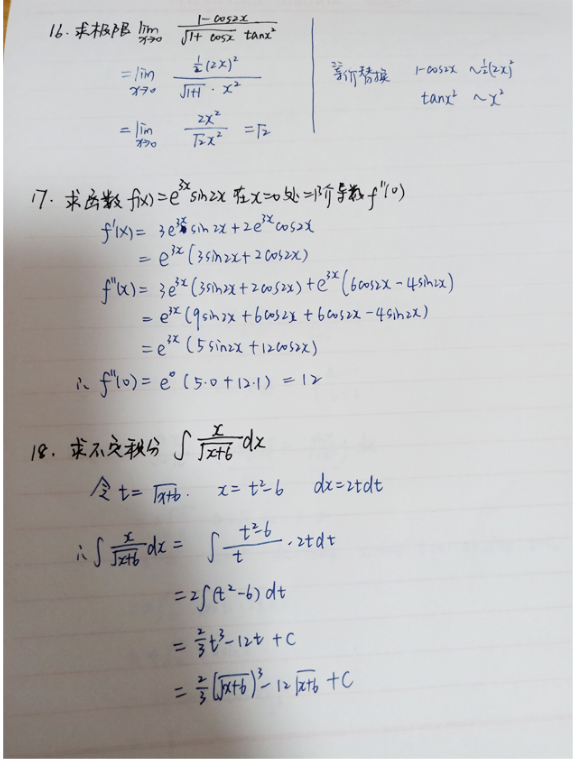 16. 求极限 lim x→0 (1-cos2x)/(√(1+cosx) tanx²)
= lim x→0 (½(2x)²)/(√(1+1)·x²)
= lim x→0 2x²/(√2x²) = √2
等价替换 1-cos2x ~ ½(2x)²
tanx² ~ x²
17. 求函数 f(x)=e³ˣsin2x 在x=0处二阶导数f''(0)
f'(x)= 3e³ˣsin2x+2e³ˣcos2x
= e³ˣ(3sin2x+2cos2x)
f''(x)= 3e³ˣ(3sin2x+2cos2x)+e³ˣ(6cos2x-4sin2x)
= e³ˣ(9sin2x+6cos2x+6cos2x-4sin2x)
= e³ˣ(5sin2x+12cos2x)
∴ f''(0)= e⁰(5·0+12·1) = 12
18. 求不定积分 ∫ x/√(x+6) dx
令 t=√(x+6). x=t²-6 dx=2tdt
∴ ∫ x/√(x+6) dx = ∫ (t²-6)/t ·2tdt
=2∫(t²-6)dt
= ⅔t³-12t+C
= ⅔(√(x+6))³-12√(x+6)+C